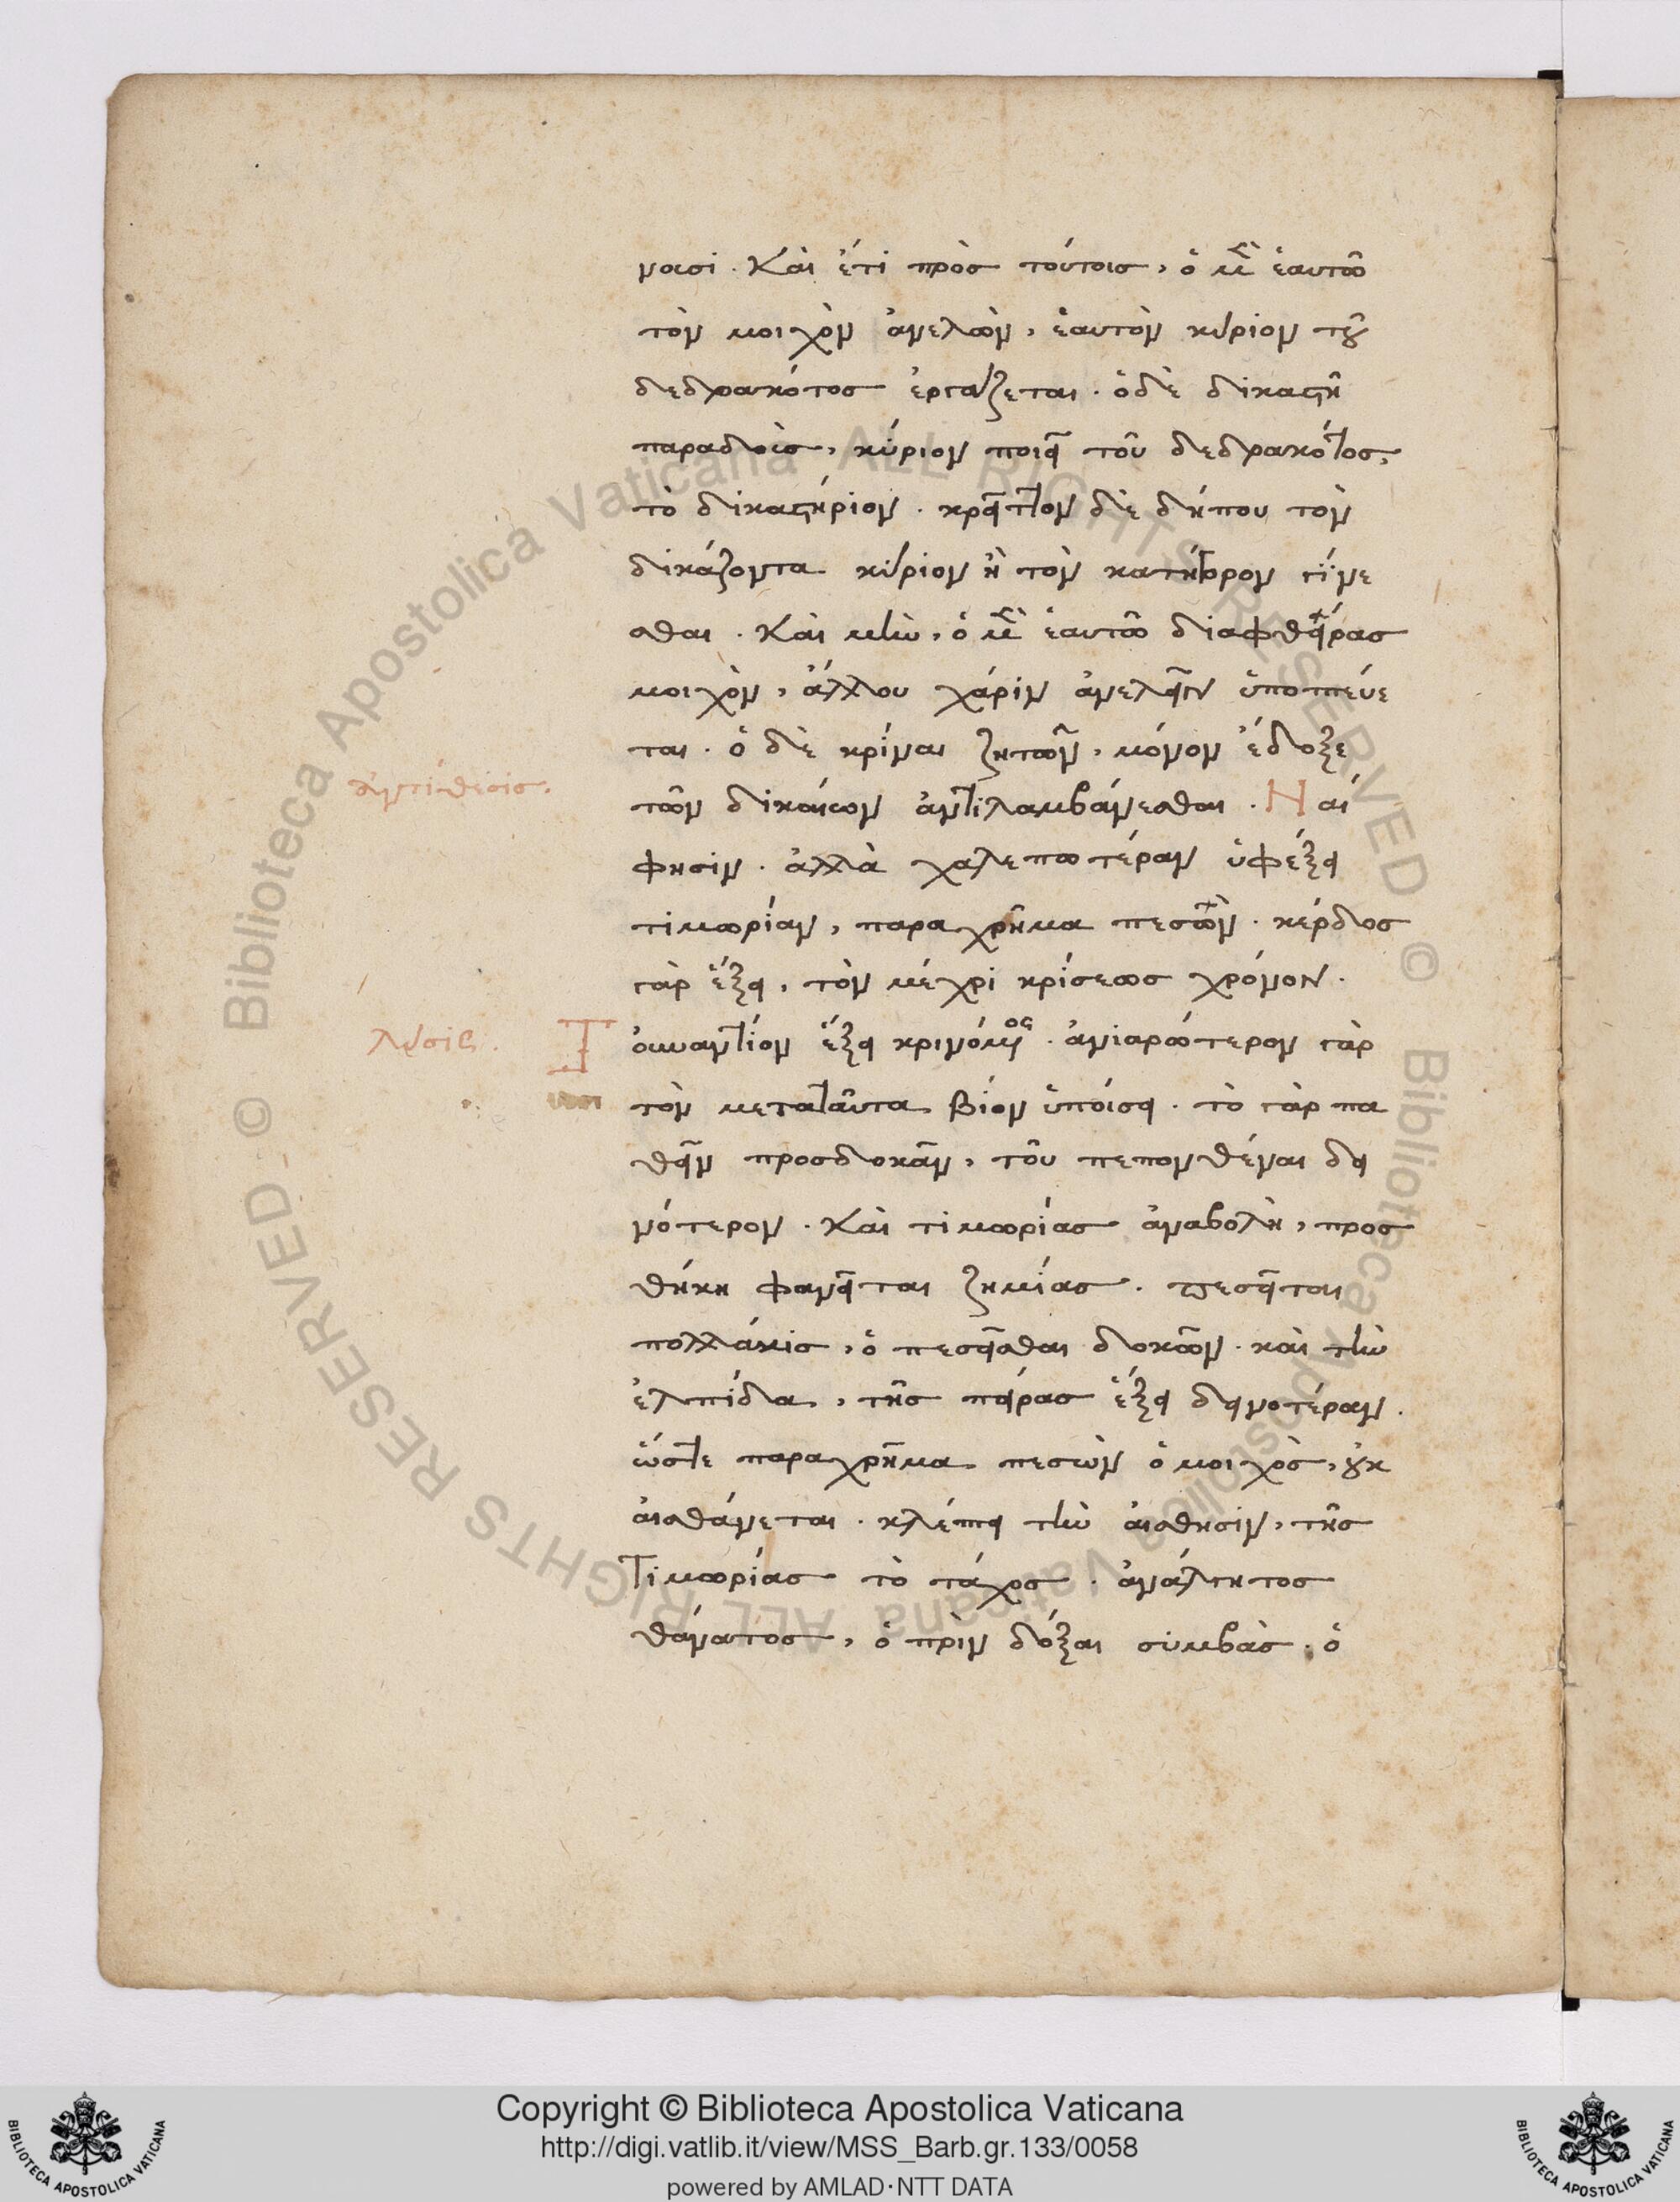 νοισι. Καὶ ἔτι πρὸς τούτοις, ὁ μεθ' ἑαυτῶ
τὸν μοιχὸν ἀνελὼν, ἑαυτὸν κύριον τοῦ
δεδρακότος ἐργάζεται. ὁ δὲ δικαστῆ
παραδοὺς, κύριον ποιεῖ τοῦ δεδρακότος,
τὸ δικαστήριον. κρεῖττον δὲ δήπου τὸν
δικάζοντα κύριον ἢ τὸν κατήγορον γίνε
σθαι. Καὶ μὴν, ὁ μὲν ἑαυτῶ διαφθείρας
μοιχὸν, ἄλλου χάριν ἀνελεῖν ὑποπτεύε
ται. ὁ δὲ κρίναι ζητῶν, μόνον ἔδοξε
ἀντίθεσις.
τῶν δικαίων ἀντιλαμβάνεσθαι. Ναί
φησιν. ἀλλὰ χαλεπωτέραν ὑφέξει
τιμωρίαν, παραχρῆμα πεσὼν. κέρδος
γὰρ ἕξει, τὸν μέχρι κρίσεως χρόνον.
λύσις.
Τοὐναντίον ἕξει κρινόμενος. ἀνιαρώτερον γὰρ
τὸν μεταταῦτα βίον ὑποίσει. τὸ γὰρ πα
θεῖν προσδοκᾶν, τοῦ πεπονθέναι δει
νότερον. Καὶ τιμωρίας ἀναβολὴ, προσ
θήκη φανεῖται ζημίας. πεσεῖται
πολλάκις, ὁ πεσεῖσθαι δοκῶν. καὶ τὴν
ἐλπίδα, τῆς πείρας ἕξει δεινοτέραν.
ὥστε παραχρῆμα πεσὼν ὁ μοιχὸς, οὐκ
αἰσθάνεται. κλέπτει τὴν αἴσθησιν, τῆς
τιμωρίας τὸ τάχος. ἀνάλγητος
θάνατος, ὁ πρὶν δόξαι συμβὰς. ὁ
Copyright © Biblioteca Apostolica Vaticana
http://digi.vatlib.it/view/MSS_Barb.gr.133/0058
powered by AMLAD·NTT DATA